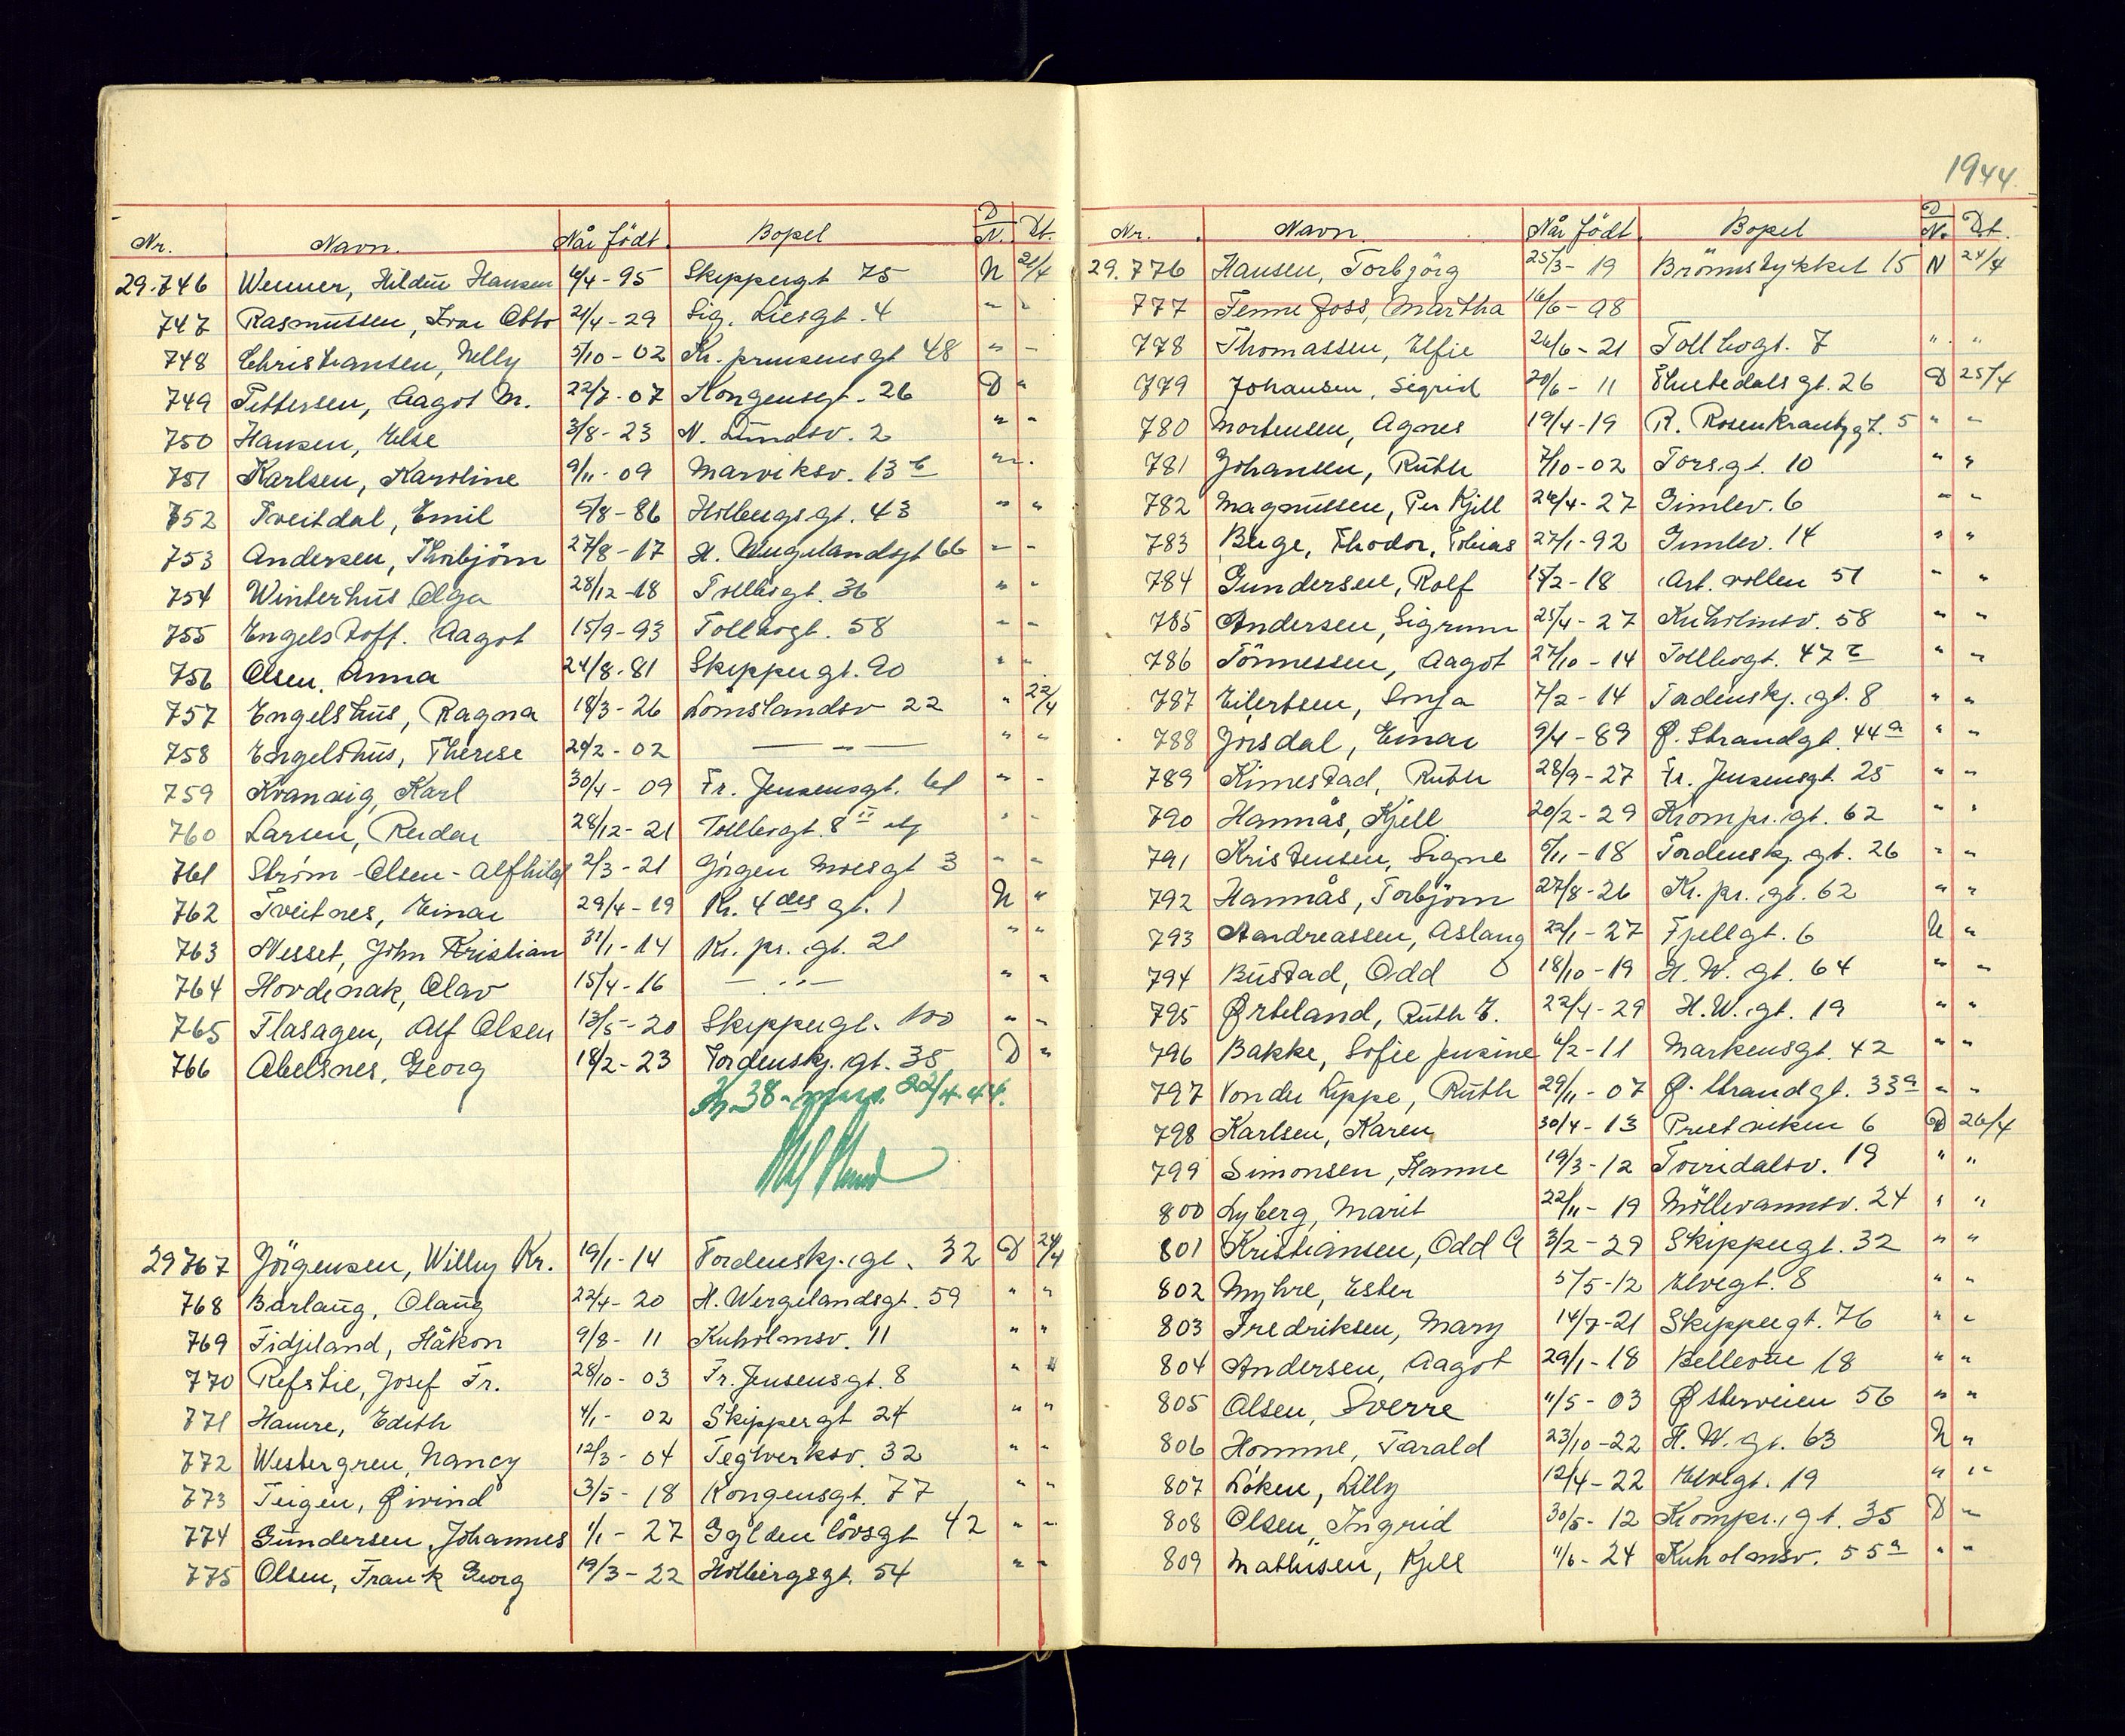 Nr. Navn. Når født. Bopel D/N. Dt.
29.746 Wenner, Hildur Hansen 6/4-95 Skippergt 75 N 21/4
747 Rasmussen, Ivar Otto 21/4-29 Sig. Liesgt. 4 " "
748 Christiansen, Nelly 5/10-02 Kr. prinsensgt 48 " -
749 Pettersen, Aagot M. 22/7-07 Kongensgt. 26 D "
750 Hansen, Else 3/8-23 N. Lundsv. 2 " "
751 Karlsen, Karoline 9/11-09 Marviksv. 13 b " "
752 Tveitdal, Emil 5/8-86 Holbergsgt. 43 " "
753 Andersen, Thorbjörn 27/8-17 H. Wergelandsgt 66 " -
754 Winterhus Olga 28/12-18 Tollbogt. 36 " "
755 Engelstoft. Aagot 15/9-93 Tollbogt. 58 " -
756 Olsen, Anna 24/8-81 Skippergt. 90 " "
757 Engelshus, Ragna 18/3-26 Lömslandsv 22 " 22/4
758 Engelshus, Therese 29/2-02 — " — " "
759 Kvanvig, Karl 30/4-09 Fr. Jensensgt. 61 " -
760 Larsen, Reidar 28/12-21 Tollbogt. 8 II " -
761 Strøm-Olsen-Alfhild 2/3-21 Jörgen Moesgt 3 " "
762 Tveitnes, Einar 29/4-19 Kr. 4des gt. 1 N "
763 Nesset, John Kristian 31/1-14 Kr. pr. gt. 21 " "
764 Hovdenak, Olav 15/4-16 — " — " "
765 Flasagen, Alf Olsen 13/5-20 Skippergt. 100 " "
766 Abelsnes, Georg 18/2-23 Tordenskj. gt. 35 D "
Kr. 38.- 22/4-44.
29767 Jörgensen, Willy Kr. 19/1-14 Tordenskj. gt. 32 D 24/4
768 Barlaug, Olaug 22/4-20 H. Wergelandsgt. 59 " "
769 Fidjeland, Håkon 9/8-11 Kuholmsv. 11 " "
770 Refstie, Josef Fr. 28/10-03 Fr. Jensensgt. 8 " "
771 Hamre, Edith 4/1-02 Skippergt 24 " "
772 Westergren, Nancy 12/3-04 Teglverksv. 32 " "
773 Teigen, Øivind 3/5-18 Kongensgt. 77 " "
774 Gundersen, Johannes 1/1-27 Gyldenlövsgt 42 " "
775 Olsen, Frank Georg 19/3-22 Holbergsgt. 54 " "
1944.
Nr. Navn Når født. Bopel D/N. Dt.
29.776 Hansen, Torbjörg 25/3-19 Brönnstykket 15 N 24/4
777 Fenne Foss, Martha 16/6-98
778 Thomassen, Elfie 26/6-21 Tollbogt. 7 " "
779 Johansen, Sigrid 20/6-11 Thistedals gt. 26 D 25/4
780 Mortensen, Agnes 19/4-19 R. Rosenkrantzgt. 5 " -
781 Johansen, Ruth 7/10-02 Torsgt. 10 " "
782 Magnussen, Per Kjell 26/4-27 Gimlev. 6 " "
783 Buge, Thodor, Tobias 27/1-92 Gimlev. 14 " "
784 Gundersen, Rolf 15/2-18 Art. vollen 51 " "
785 Andersen, Sigrunn 25/4-27 Kuholmsv. 58 " "
786 Tönnessen, Aagot 27/10-14 Tollbogt. 47 c " "
787 Eilertsen, Sonja 7/2-14 Tordenskj. gt. 8 " "
788 Jorsdal, Einar 9/4-89 Ø. Strandgt. 44 a " "
789 Kimestad, Ruth 28/9-27 Fr. Jensensgt. 25 " "
790 Hannås, Kjell 20/2-29 Kronpr. gt. 62 " "
791 Kristensen, Signe 5/11-18 Tordenskj. gt. 26 " "
792 Hannås, Torbjörn 27/8-26 Kr. pr. gt. 62 " "
793 Aandreassen, Aslaug 22/1-27 Fjellgt. 6 N "
794 Bustad, Odd 18/10-19 H. W. gt. 64 " "
795 Ørteland, Ruth E. 22/4-29 H. W. gt. 19 " "
796 Bakke, Sofie Jensine 6/2-11 Markensgt. 42 " "
797 Von der Lippe, Ruth 29/11-07 Ø. Strandgt. 33 a " "
798 Karlsen, Karen 30/4-13 Prestviken 6 D 26/4
799 Simonsen, Hanne 19/3-12 Torridalsv. 19 " "
800 Lyberg, Marit 22/11-19 Möllevannsv. 24 " "
801 Kristiansen, Odd A 3/2-29 Skippergt. 32 " "
802 Myhre, Ester 5/5-12 Elvegt. 8 " "
803 Fredriksen, Mary 14/7-21 Skippergt. 76 " "
804 Andersen, Aagot 29/1-18 Bellevue 18 " "
805 Olsen, Sverre 11/5-03 Østerveien 56 " "
806 Homme, Tarald 23/10-22 H. W. gt. 63 N "
807 Löken, Lilly 12/4-22 Elvegt. 19 " "
808 Olsen, Ingrid 30/5-12 Kronpr. gt. 35 D "
809 Mathisen, Kjell 11/6-24 Kuholmsv. 55 a " "